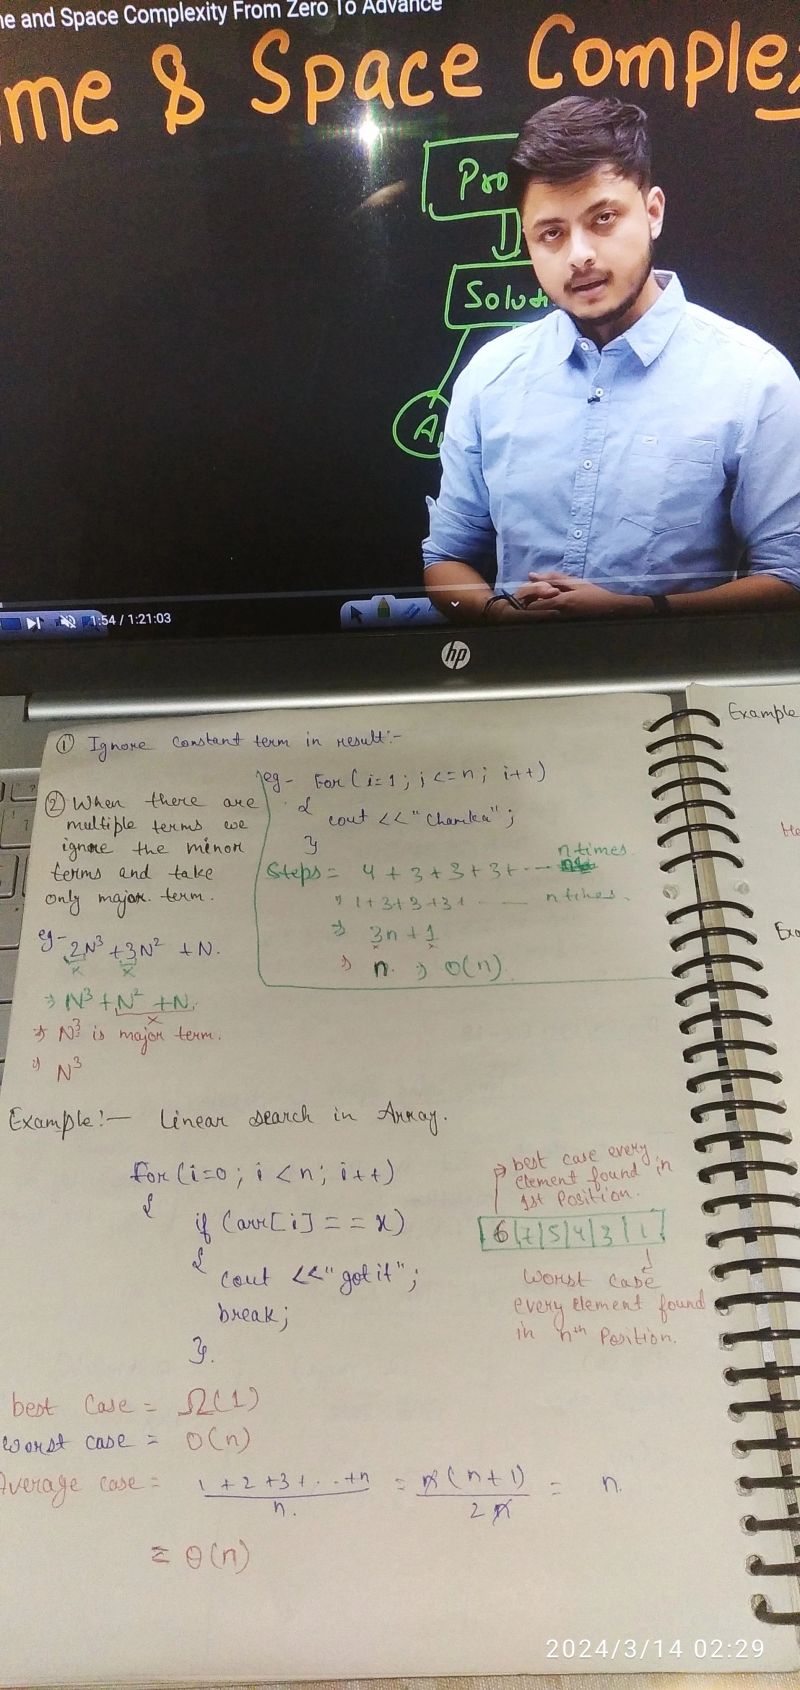 ne and Space Complexity From Zero To Advance
ime & Space Comple
Pro
Solut
A
1:54 / 1:21:03
hp
① Ignore constant term in result:-
② When there are
multiple terms we
ignore the minor
terms and take
only major term.
eg- 2N³ + 3N² + N.
x x
⇒ N³ + N² + N.
x
⇒ N³ is major term.
⇒ N³
eg- For (i=1; i<=n; i++)
{
cout << "Chamka";
}
Steps = 4 + 3 + 3 + 3 + ... n times
⇒ 1 + 3 + 3 + 3 + ...... n times.
⇒ 3n + 1
x x
⇒ n. ⇒ O(n)
Example
Exa
Example:- Linear search in Array.
for (i=0; i<n; i++)
{
if (arr[i] == x)
{
cout << "got it";
break;
}.
→ best case every
element found in
1st Position.
6|7|5|4|3|1
↓
Worst case
every element found
in nth Position.
best Case = Ω(1)
worst case = O(n)
Average case = 1+2+3+...+n / n. = n(n+1) / 2n = n.
= θ(n)
2024/3/14 02:29